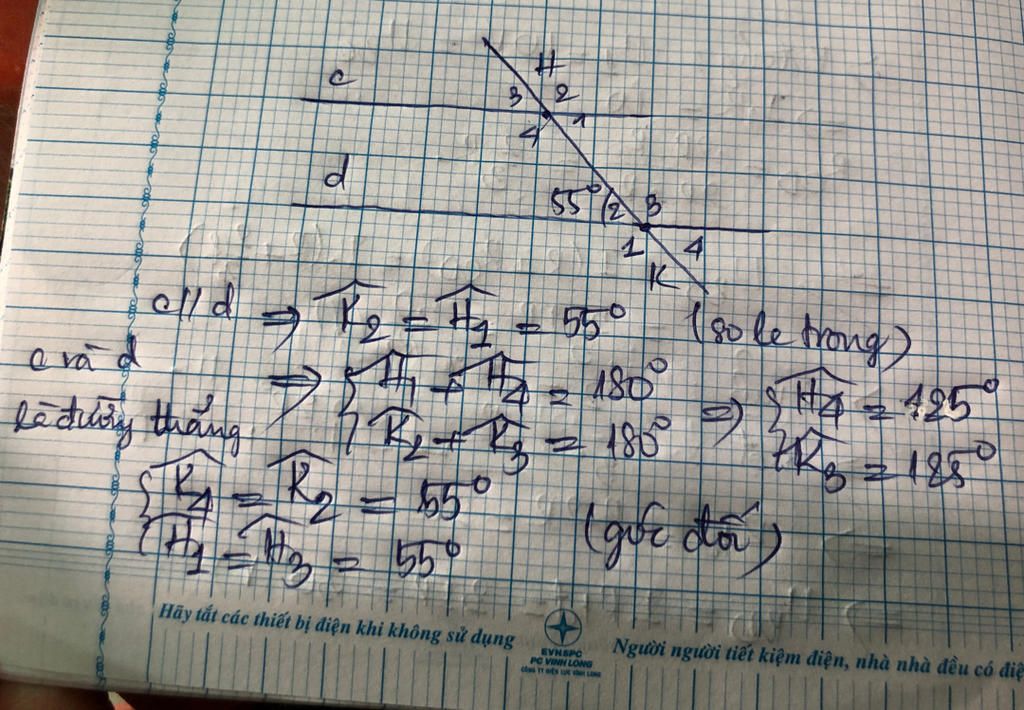 H
c
3 2
4 1
d
55° 2 3
1 4
K
c // d ⇒ K̂₂ = Ĥ₁ = 55° (so le trong)
c và d
là đường thẳng ⇒ { Ĥ₁ + Ĥ₄ = 180° ⇒ { Ĥ₄ = 125°
K̂₂ + K̂₃ = 180° K̂₃ = 125°
{ K̂₄ = K̂₂ = 55°
Ĥ₁ = Ĥ₃ = 55° (góc đối)
Hãy tắt các thiết bị điện khi không sử dụng
EVNSPC
PC VINH LONG
CÔNG TY ĐIỆN LỰC VĨNH LONG
Người người tiết kiệm điện, nhà nhà đều có điệ